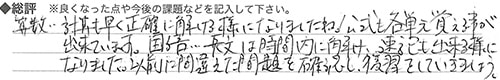 ◆総評 ※良くなった点や今後の課題などを記入して下さい。
算数…計算も早く正確に解ける様になりましたね!公式も各単元覚える事が
出来ています。国語…長文は時間内に解け、速さも出来る様に
なりました。以前に間違えた問題を確認し、復習をしていきましょう